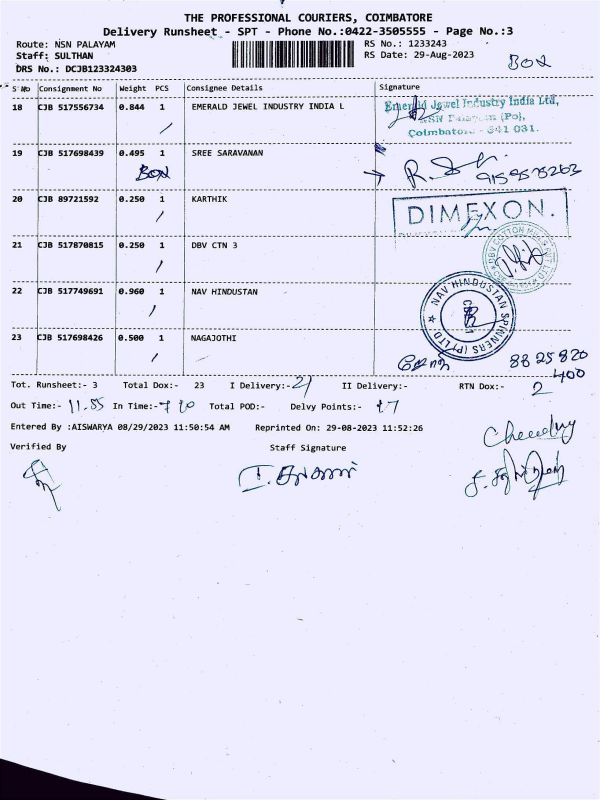 THE PROFESSIONAL COURIERS, COIMBATORE
Delivery Runsheet - SPT - Phone No.:0422-3505555 - Page No.:3
Route: NSN PALAYAM RS No.: 1233243
Staff: SULTHAN RS Date: 29-Aug-2023
BOX
DRS No.: DCJB123324303
S No Consignment No Weight PCS Consignee Details Signature
18 CJB 517556734 0.844 1 EMERALD JEWEL INDUSTRY INDIA L
Emerald Jewel Industry India Ltd,
NSN Palayam (Po),
Coimbatore - 641 031.
19 CJB 517698439 0.495 1 SREE SARAVANAN
BOX
20 CJB 89721592 0.250 1 KARTHIK
DIMEXON.
21 CJB 517870815 0.250 1 DBV CTN 3
DBV COTTON MILLS PVT LTD
22 CJB 517749691 0.960 1 NAV HINDUSTAN
NAV HINDUSTAN SPINNERS (P) LTD.
23 CJB 517698426 0.500 1 NAGAJOTHI
88 25 820
400
Tot. Runsheet:- 3 Total Dox:- 23 I Delivery:- 21 II Delivery:- RTN Dox:- 2
Out Time:- 11.55 In Time:- Total POD:- Delvy Points:- 17
Entered By :AISWARYA 08/29/2023 11:50:54 AM Reprinted On: 29-08-2023 11:52:26
Verified By Staff Signature